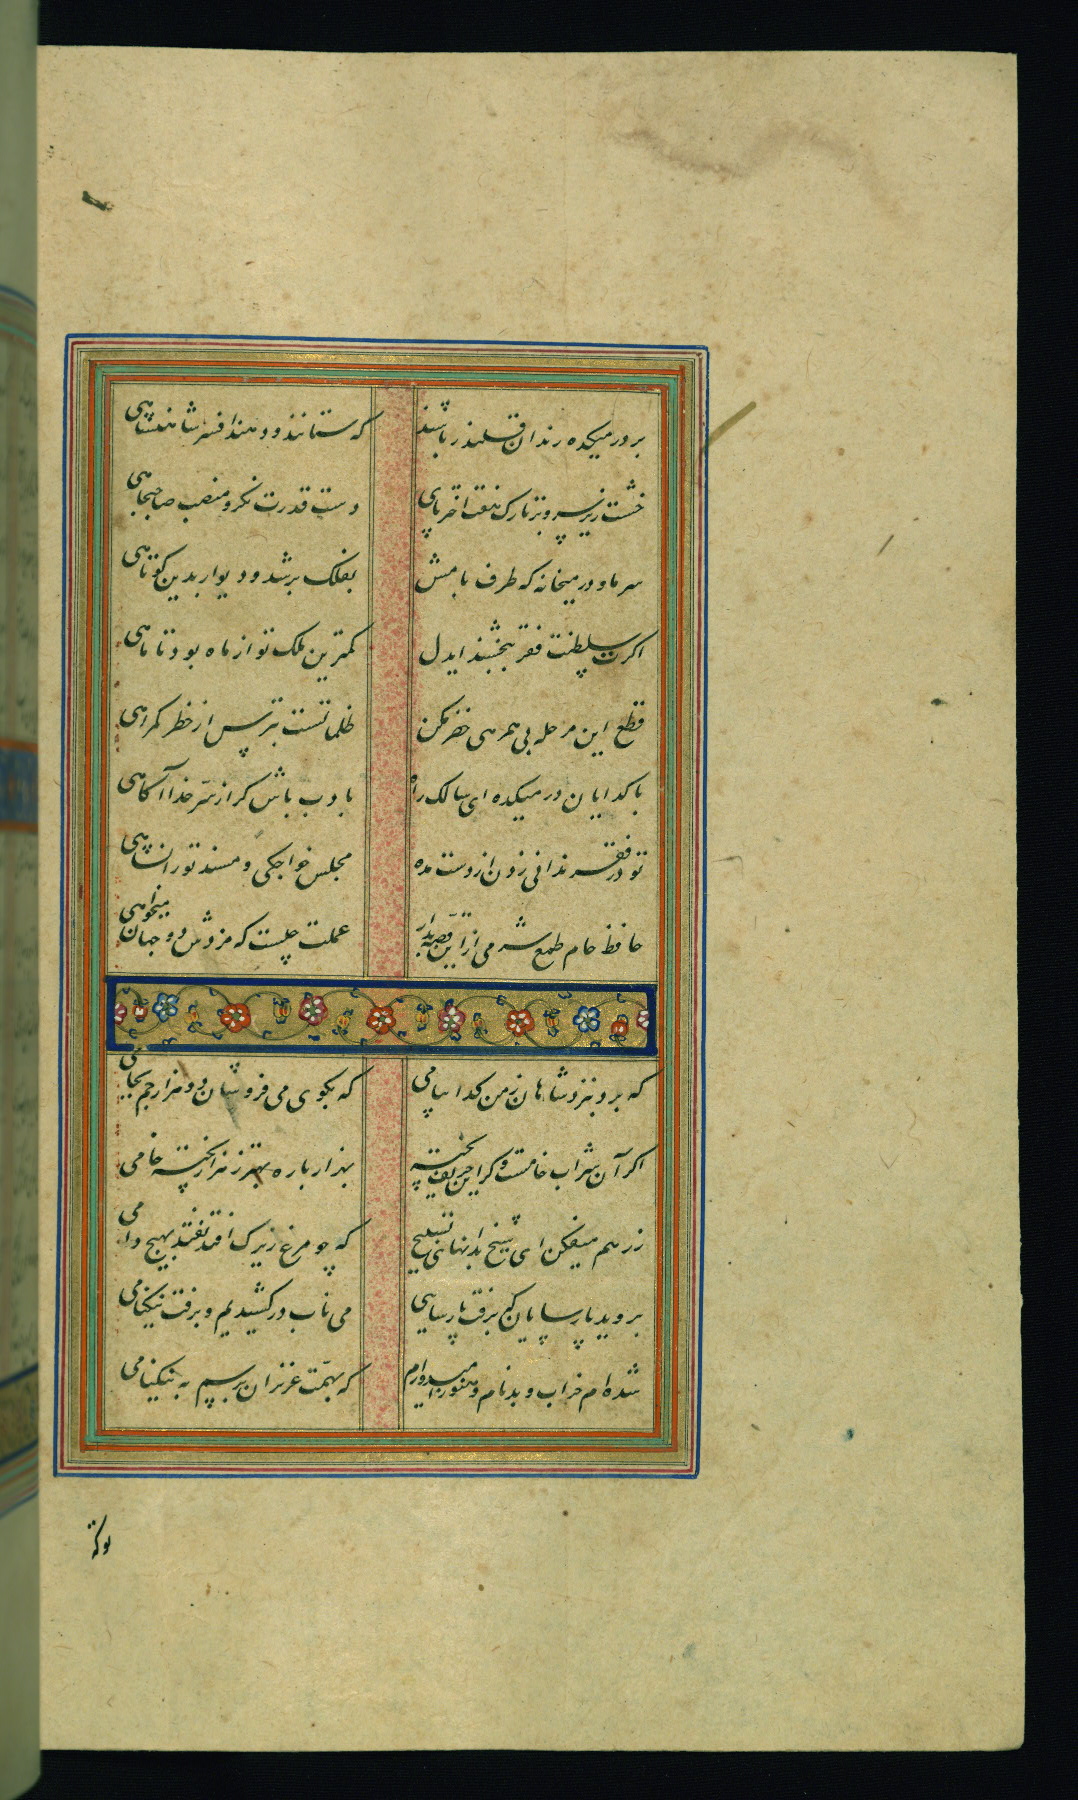 بر در میکده رندان قلندر باشند که ستانند و دهند افسر شاهنشاهی
خشت زیر سر و بر تارک هفت اختر پای دست قدرت نگر و منصب صاحبجاهی
سر ما و در میخانه که طرف بامش بفلک بر شد و دیوار بدین کوتاهی
اگرت سلطنت فقر ببخشند ایدل کمترین ملک تو از ماه بود تا ماهی
قطع این مرحله بی همرهی خضر مکن ظلماتست بترس از خطر گمراهی
با گدایان در میکده ای سالک راه با دب باش گر از سرّ خدا آگاهی
تو در فقر ندانی زدن از دست مده مجلس خواجگی و مسند تورانشاهی
حافظ خام طمع شرمی ازین قصه بدار عملت چیست که مزدش دو جهان میخواهی
که برد بنزد شاهان ز من گدا پیامی که بکوی می فروشان دو هزار جم بجامی
اگر آن شراب خامست و گر این حریف پخته بهزار باره بهتر ز هزار پخته خامی
ز رهم میفکن ای شیخ بدانهای تسبیح که چو مرغ زیرک افتد نفتد بهیچ دامی
بروید پارسایان که برفت پارسایی می ناب در کشیدیم و برفت نیکنامی
شده‌ام خراب و بدنام و هنوز امیدوارم که بهمّت عزیزان برسم به نیکنامی
توکه